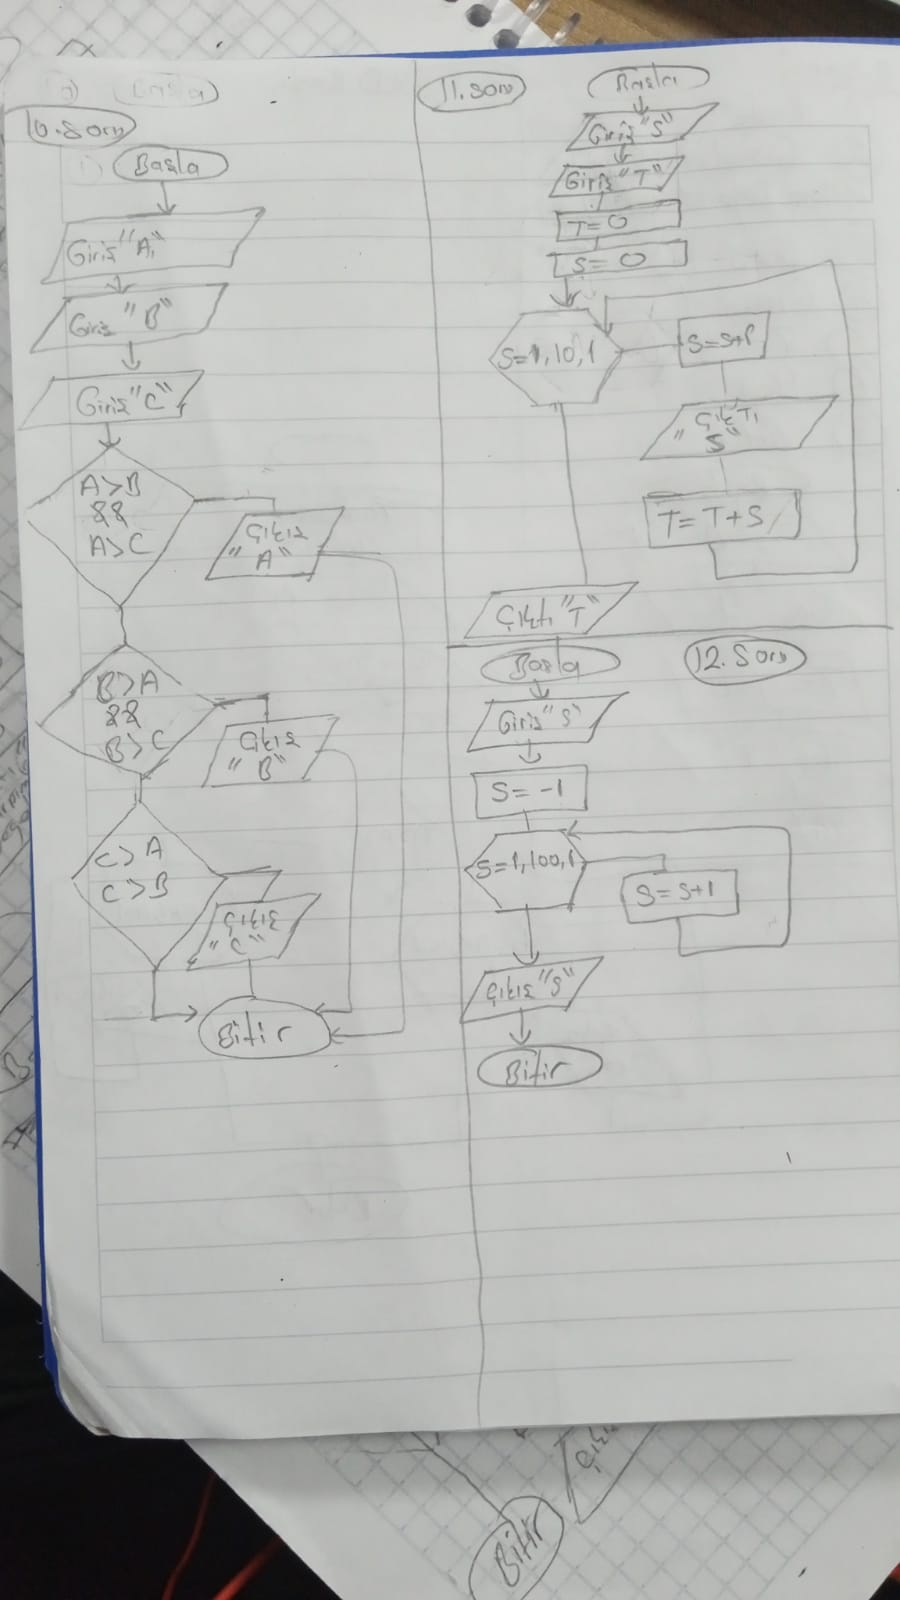 10.Soru
Başla
Giriş "A"
Giriş "B"
Giriş "C"
A>B
&&
A>C
Çıkış
"A"
B>A
&&
B>C
Çıkış
"B"
C>A
C>B
Çıkış
"C"
Bitir
11.Soru
Başla
Giriş "S"
Giriş "T"
T=0
S=0
S=1,10,1
S=S+1
Çıktı
"S"
T=T+S
Çıktı "T"
12.Soru
Başla
Giriş "S"
S=-1
S=1,100,1
S=S+1
Çıkış "S"
Bitir
Bitir